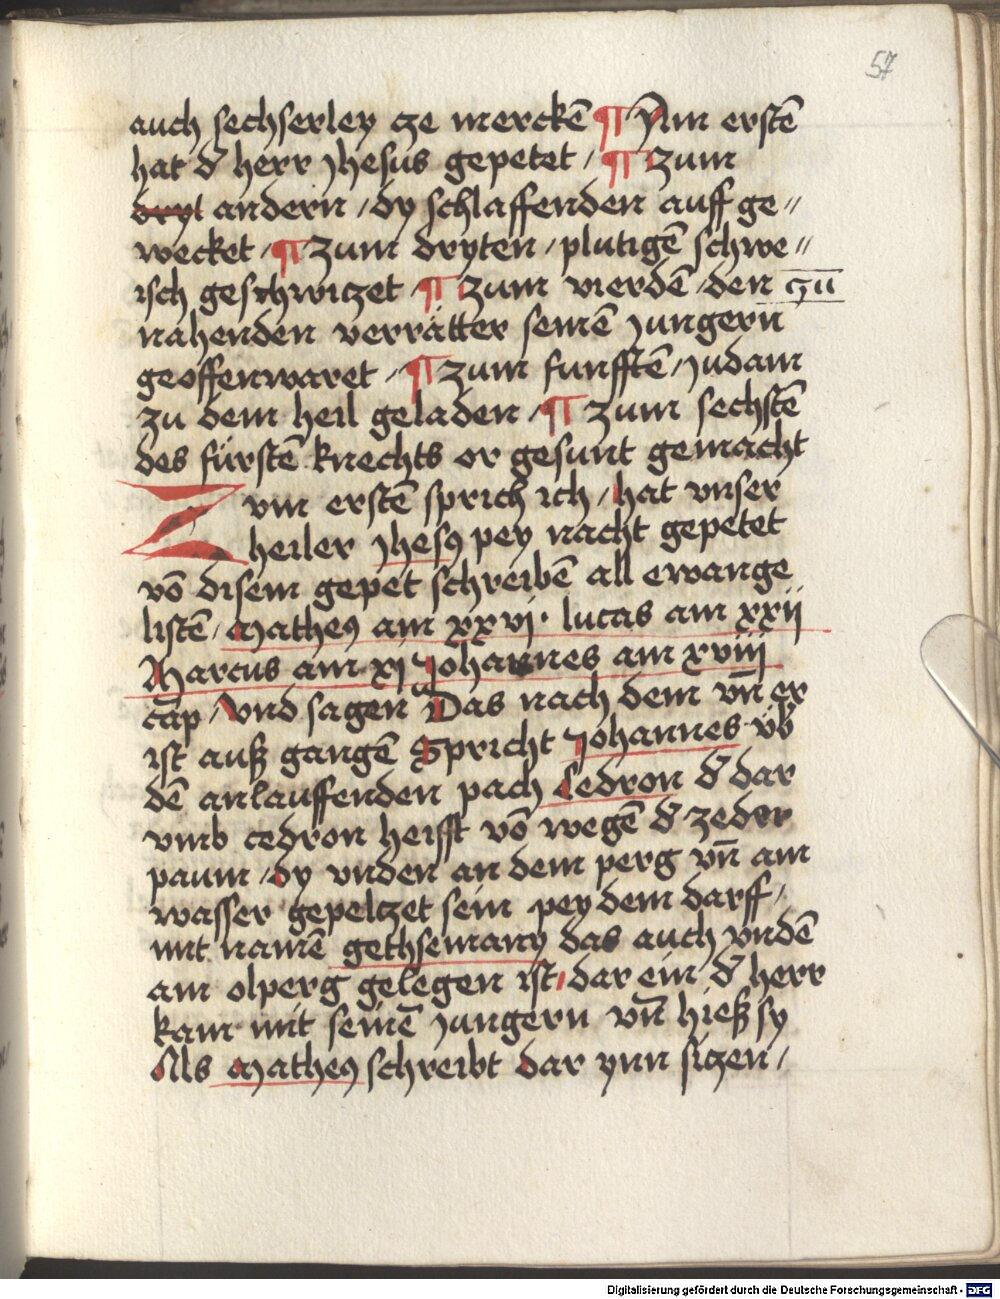 57
auch sechserley cze merckē ¶ Am erstē
hat d' herr Jhesus gepetet / ¶ zum
dryt andern / dy schlaffenden auff ge〃
wecket / ¶ zum dryten / plutigē schwe〃
isch geschwiczet / ¶ zum vierdē / den czū
nahenden verrätter seinē Jungern
geoffenwaret / ¶ zum funfftē / Judam
zu dem heil geladen / ¶ zum sechstē
des fürstē knechts or gesunt gemacht
Zvm erstē sprich ich / hat vnser
heiler Jhesꝯ pey nacht gepetet
vō disem gepet schreibē all ewange
listē / Matheꝯ am xxvj · lucas am xxij
Marcus am xj Johannes am xviij
cap / Vnd sagen Das nach dem vn̄ er
ist auß gangē Spricht Johannes vb'
dē anlauffenden pach Cedron d' dar
vmb cedron heisst vō wegē d' zeder
paum / dy vnden an dem perg vn̄ am
wasser gepelczet sein pey dem darff /
mit namē gethsemany das auch vndē
am olperg gelegen ist / dar ein d' herr
kam mit seinē Jungern vn̄ hieß sy
Als Matheꝯ schreibt dar ynn siczen /
Digitalisierung gefördert durch die Deutsche Forschungsgemeinschaft - DFG